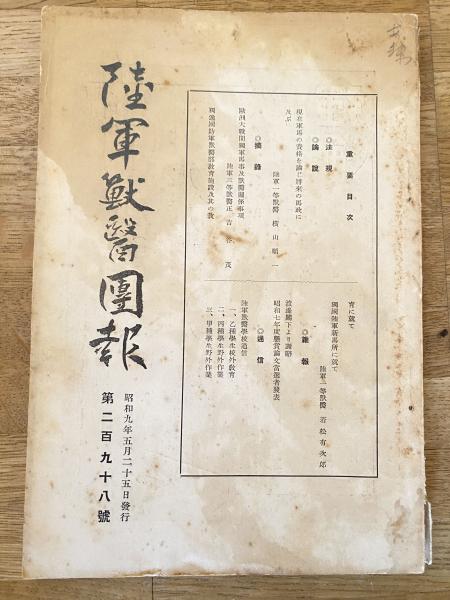 重要目次
◎法規
◎論説
現在軍馬の資格を論じ將來の馬政に
及ぶ
陸軍一等獸醫 横山順一
◎摘錄
歐洲大戰間獨軍馬事及獸醫關係事項
陸軍三等獸醫正 吉谷茂
獨逸國防軍獸醫部敎育施設及其の敎
育に就て
獨國陸軍新馬所に就て
陸軍二等獸醫 若松有次郎
◎雜報
渡邊閣下より謝辭
昭和七年度懸賞論文當選者發表
◎通信
陸軍獸醫學校通信
一、乙種學生校外敎育
二、丙種學生野外作業
三、甲種學生野外作業
陸軍獸醫團報
昭和九年五月二十五日發行
第二百九十八號